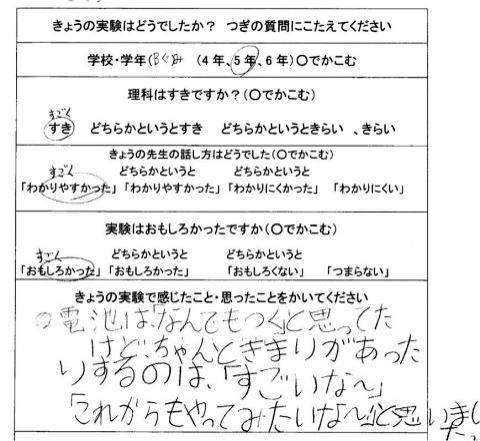 きょうの実験はどうでしたか？ つぎの質問にこたえてください
学校・学年( (4年、5年、6年)〇でかこむ
理科はすきですか？(〇でかこむ)
すごく
すき どちらかというとすき どちらかというときらい 、きらい
きょうの先生の話し方はどうでした(〇でかこむ)
すごく どちらかというと どちらかというと
「わかりやすかった」「わかりやすかった」「わかりにくかった」「わかりにくい」
実験はおもしろかったですか(〇でかこむ)
すごく どちらかというと どちらかというと
「おもしろかった」「おもしろかった」 「おもしろくない」 「つまらない」
きょうの実験で感じたこと・思ったことをかいてください
電池は、「なんでもつく」と思ってた
けど、ちゃんときまりがあった
りするのは、「すごいな〜」
「これからもやってみたいな〜」と思いまし
た。